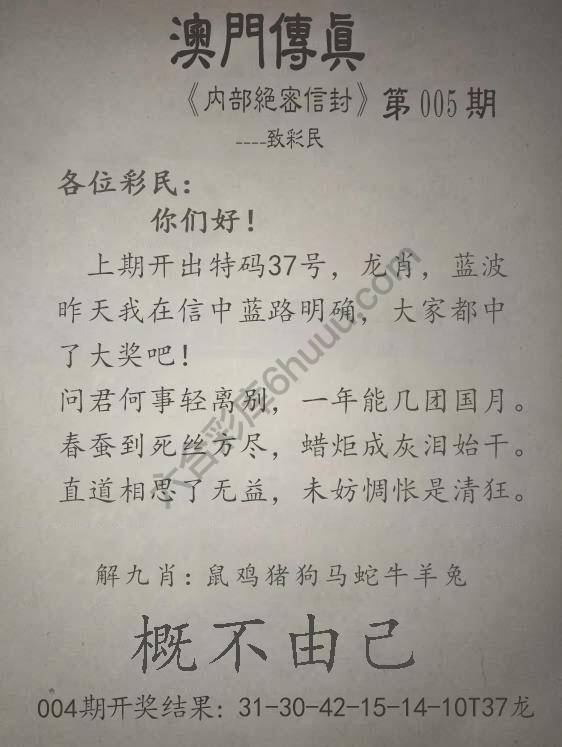 澳門傳眞
《内部絕密信封》第005期
----致彩民
各位彩民：
你们好！
上期开出特码37号，龙肖，蓝波
昨天我在信中蓝路明确，大家都中
了大奖吧！
问君何事轻离别，一年能几团国月。
春蚕到死丝方尽，蜡炬成灰泪始干。
直道相思了无益，未妨惆怅是清狂。
六合彩库6huuu.com
解九肖：鼠鸡猪狗马蛇牛羊兔
概不由己
004期开奖结果：31-30-42-15-14-10T37龙